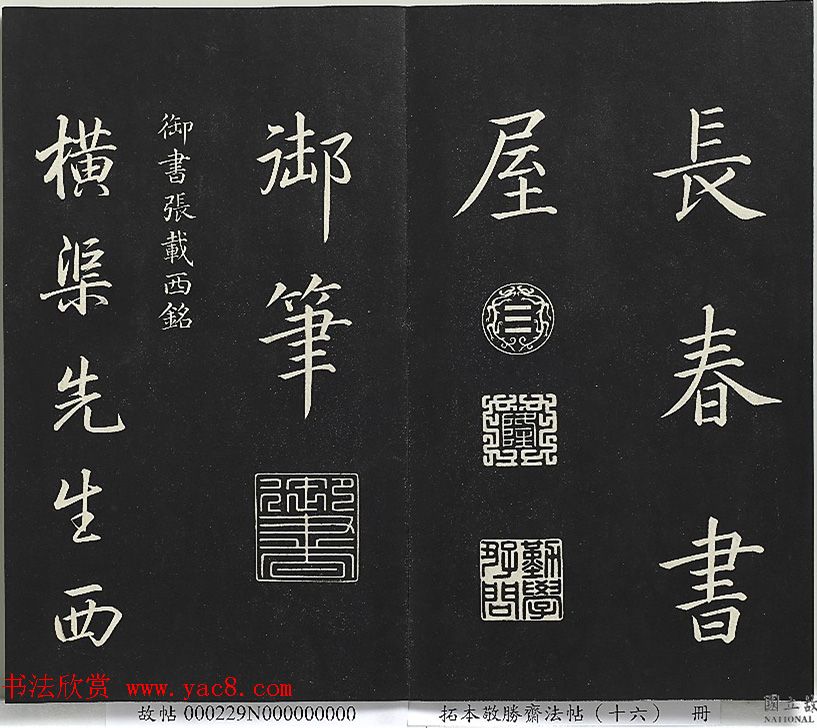 長春書
屋
御筆
御書
勤學
好問
御書張載西銘
橫渠先生西
书法欣赏 www.yac8.com
故帖 000229N000000000
拓本敬勝齋法帖（十六） 冊
國立故
NATIONAL